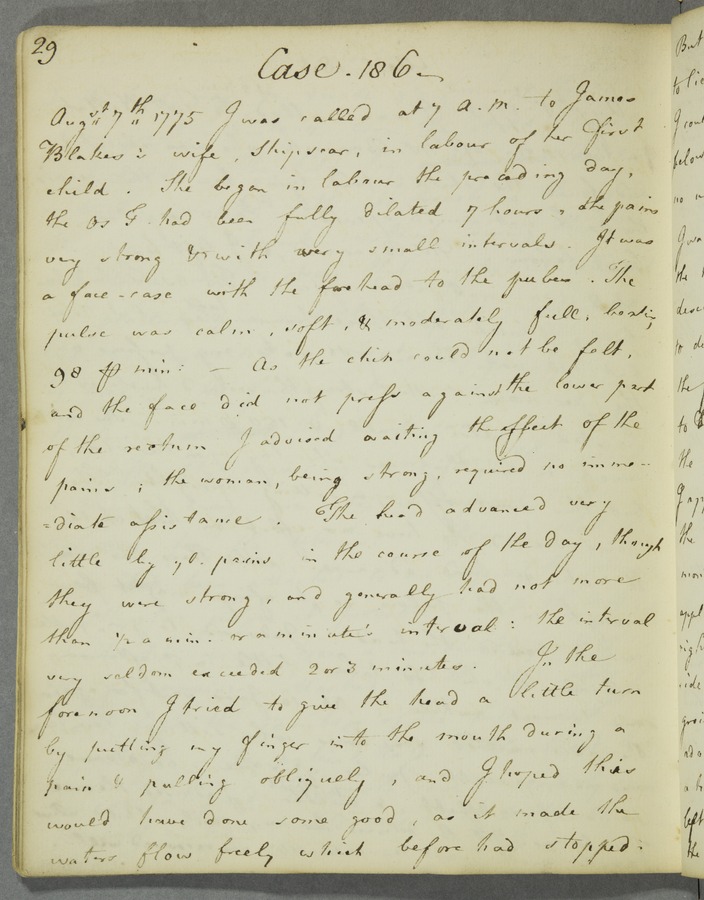 29
Case. 186.
Augst 7th 1775 I was called at 7 A.M. to James
Blakes's wife, Shipscar, in labour of her first
child. She began in labour the preceding day,
the Os T. had been fully dilated 7 hours, the pains
very strong & with very small intervals. It was
a face-case with the forehead to the pubes. The
pulse was calm, soft, & moderately full, beating
98 ⅌ min: – As the chin could not be felt,
and the face did not press against the lower part
of the rectum I advised waiting the effect of the
pains; the woman, being strong, required no imme-
=diate assistance. The head advanced very
little by ye. pains in the course of the day, though
they were strong, and generally had not more
than ½ a min: or a minute's interval: the interval
very seldom exceeded 2 or 3 minutes. In the
forenoon I tried to give the head a little turn
by putting my finger into the mouth during a
pain & pulling obliquely, and I hoped this
would have done some good, as it made the
waters flow freely which before had stopped.